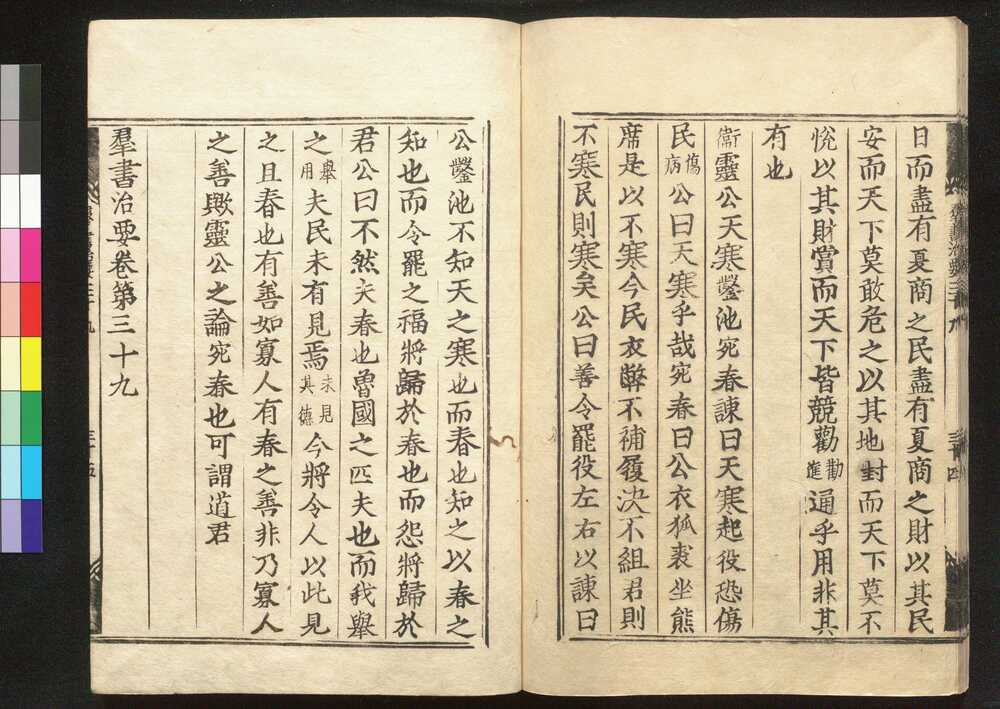 日而盡有夏商之民盡有夏商之財以其民
安而天下莫敢危之以其地封而天下莫不
悅以其財賞而天下皆競勸勸進通乎用非其
有也
衞靈公天寒鑿池宛春諫曰天寒起役恐傷
民傷病公曰天寒乎哉宛春曰公衣狐裘坐熊
席是以不寒今民衣弊不補履決不組君則
不寒民則寒矣公曰善令罷役左右以諫曰
公鑿池不知天之寒也而春也知之以春之
知也而令罷之福將歸於春也而怨將歸於
君公曰不然夫春也魯國之匹夫也而我舉
之舉用夫民未有見焉未見其德今將令人以此見
之且春也有善如寡人有春之善非乃寡人
之善歟靈公之論宛春也可謂道君
羣書治要卷第三十九